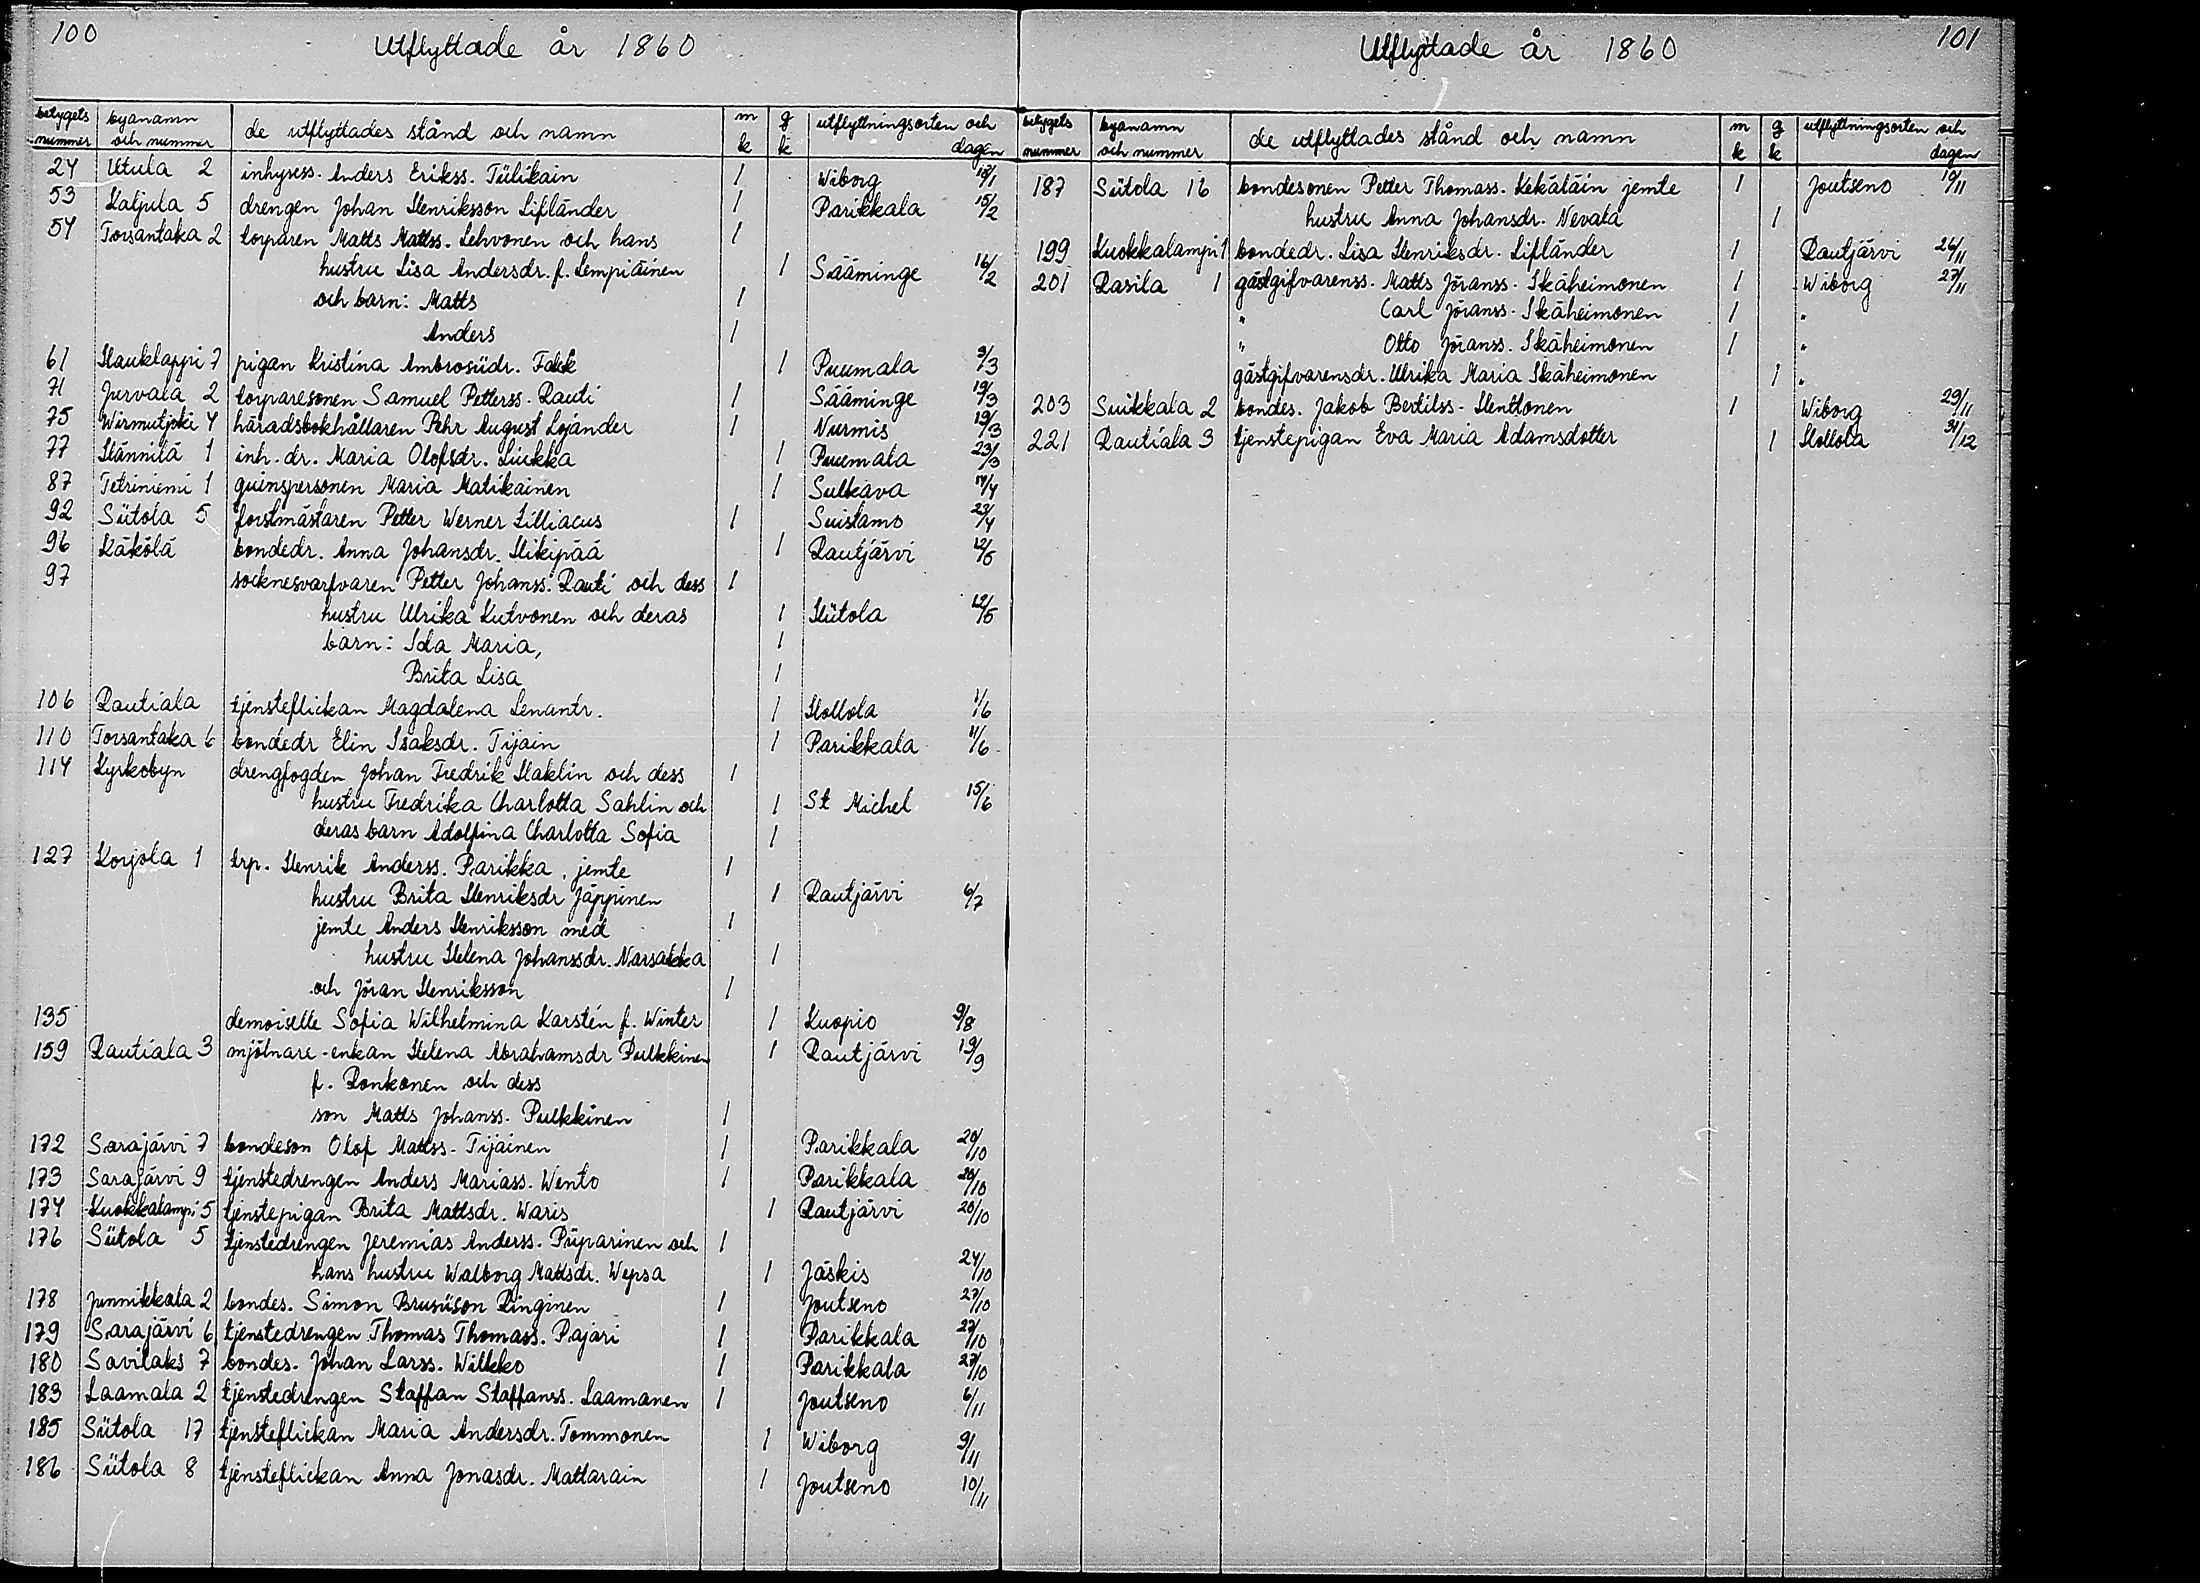 100
Utflyttade år 1860
betygets nummer | byanamn och nummer | de utflyttades stånd och namn | mk | gk | utflyttningsorten och dagen
24 Utula 2 inhyress. Anders Erikss. Tiilikain 1 Wiborg 18/1
53 Kaljula 5 drengen Johan Henriksson Lifländer 1 Parikkala 15/2
54 Torsantaka 2 torparen Matts Mattss. Lehvonen och hans 1
hustru Lisa Andersdr. f. Lempiäinen 1 Sääminge 16/2
och barn: Matts 1
Anders 1
61 Hauklappi 7 pigan Kristina Ambrosiidr. Falck 1 Puumala 3/3
71 Purvala 2 torparesonen Samuel Petterss. Rauti 1 Sääminge 19/3
75 Wirmutjoki 4 häradsbokhållaren Pehr August Lojander 1 Nurmis 19/3
77 Hännilä 1 inh. dr. Maria Olofsdr. Liukka 1 Puumala 23/3
87 Tetriniemi 1 qvinspersonen Maria Matikainen 1 Sulkava 14/4
92 Siitola 5 forstmästaren Petter Werner Lilliacus 1 Suistamo 23/4
96 Käkölä bondedr. Anna Johansdr. Hikipää 1 Rautjärvi 12/5
97 socknesvarfvaren Petter Johanss. Rauti och dess 1
hustru Ulrika Kutvonen och deras 1 Hiitola 12/5
barn: Ida Maria, 1
Brita Lisa 1
106 Rautiala tjensteflickan Magdalena Lenantr. 1 Hollola 1/6
110 Torsantaka 6 bondedr Elin Isaksdr. Tijain 1 Parikkala 11/6
114 Kyrkobyn drengfogden Johan Fredrik Haklin och dess 1
hustru Fredrika Charlotta Sahlin och 1 St Michel 15/6
deras barn Adolfina Charlotta Sofia 1
127 Korjola 1 trp. Henrik Anderss. Parikka, jemte 1
hustru Brita Henriksdr Jäppinen 1 Rautjärvi 6/7
jemte Anders Henriksson med 1
hustru Helena Johanssdr. Narsakka 1
och Jöran Henriksson 1
135 demoiselle Sofia Wilhelmina Karstén f. Winter 1 Kuopio 9/8
159 Rautiala 3 mjölnare-enkan Helena Abrahamsdr Pulkkinen 1 Rautjärvi 19/9
f. Ronkonen och dess
son Matts Johanss. Pulkkinen 1
172 Sarajärvi 7 bondeson Olof Mattss. Tijäinen 1 Parikkala 20/10
173 Sarajärvi 9 tjenstedrengen Anders Mariass. Wento 1 Parikkala 20/10
174 Kuokkalampi 5 tjenstepigan Brita Mattsdr. Waris 1 Rautjärvi 20/10
176 Siitola 5 tjenstedrengen Jeremias Anderss. Piiparinen och 1
hans hustru Walborg Mattsdr. Wepsa 1 Jäskis 24/10
178 Junnikkala 2 bondes. Simon Brusiison Ringinen 1 Joutseno 27/10
179 Sarajärvi 6 tjenstedrengen Thomas Thomass. Pajari 1 Parikkala 27/10
180 Savilaks 7 bondes. Johan Larss. Wilkko 1 Parikkala 27/10
183 Laamala 2 tjenstedrengen Staffan Staffanss. Laamanen 1 Joutseno 6/11
185 Siitola 17 tjensteflickan Maria Andersdr. Tommonen 1 Wiborg 9/11
186 Siitola 8 tjensteflickan Anna Jonasdr. Mattarain 1 Joutseno 10/11
101
Utflyttade år 1860
betygets nummer | byanamn och nummer | de utflyttades stånd och namn | mk | gk | utflyttningsorten och dagen
187 Siitola 16 bondesonen Petter Thomass. Kekäläin jemte 1 Joutseno 10/11
hustru Anna Johansdr. Nevala 1
199 Kuokkalampi 1 bondedr. Lisa Henriksdr. Lifländer 1 Rautjärvi 26/11
201 Rasila 1 gästgifvarenss. Matts Jöranss. Skäheimonen 1 Wiborg 27/11
" Carl Jöranss. Skäheimonen 1 "
" Otto Jöranss. Skäheimonen 1 "
gästgifvarensdr. Ulrika Maria Skäheimonen 1 "
203 Suikkala 2 bondes. Jakob Bertilss. Henttonen 1 Wiborg 29/11
221 Rautiala 3 tjenstepigan Eva Maria Adamsdotter 1 Hollola 31/12